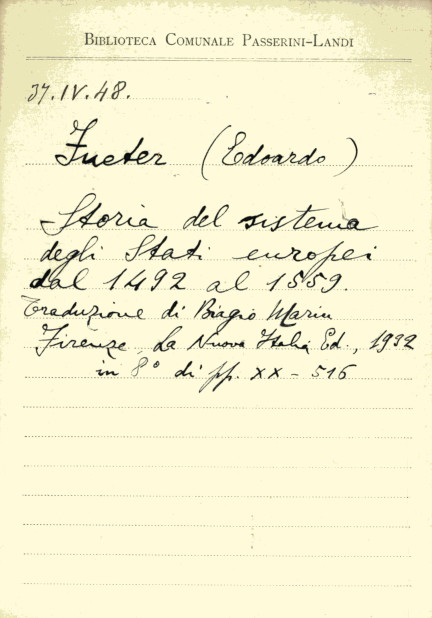 BIBLIOTECA COMUNALE PASSERINI-LANDI
37.IV.48.
Fueter (Edoardo)
Storia del sistema
degli Stati europei
dal 1492 al 1559.
Traduzione di Biagio Marin
Firenze, La Nuova Italia Ed., 1932
in 8° di pp. XX - 516